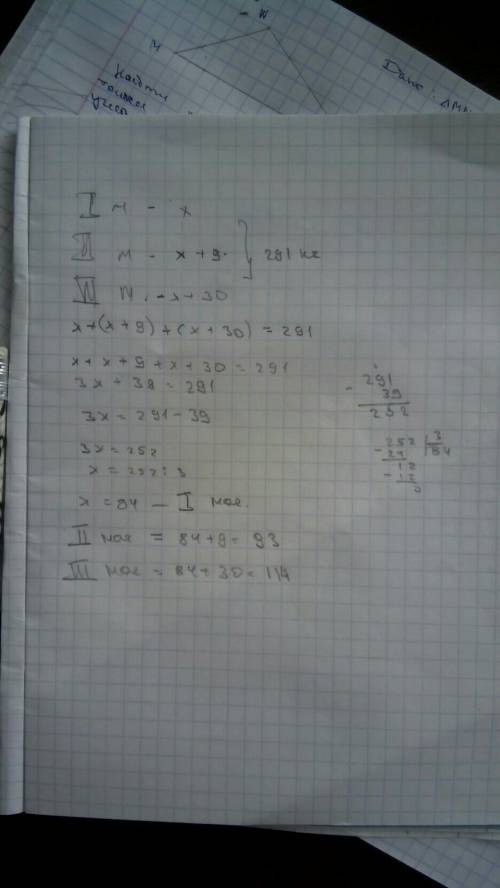 W
М
Найти
Дано: ΔMN
I м - x
II м - x+9
291 кг
III м. - x+30
x+(x+9)+(x+30)=291
x+x+9+x+30=291
3x+39=291
3x=291-39
3x=252
x=252:3
x=84 - I маг.
II маг = 84+9=93
III маг = 84+30=114
- 291
39
252
- 252 | 3
24 | 84
12
- 12
0